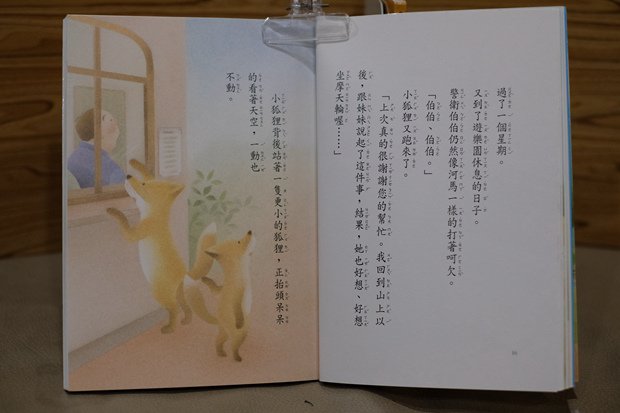 過了一個星期。
又到了遊樂園休息的日子。
警衛伯伯仍然像河馬一樣的打著呵欠。
「伯伯、伯伯。」
小狐狸又跑來了。
「上次真的很謝謝您的幫忙。我回到山上以
後，跟妹妹說起了這件事，結果，她也好想、好想
坐摩天輪喔……」
小狐狸背後站著一隻更小的狐狸，正抬頭呆呆
的看著天空，一動也
不動。